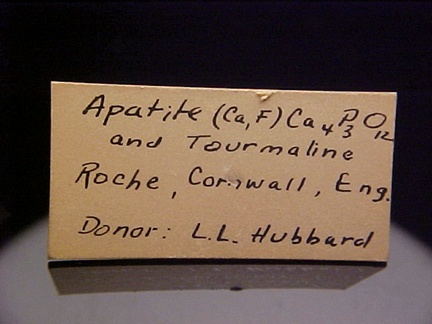 Apatite (Ca,F)Ca4P3O12
and Tourmaline
Roche, Cornwall, Eng.
Donor: L.L. Hubbard